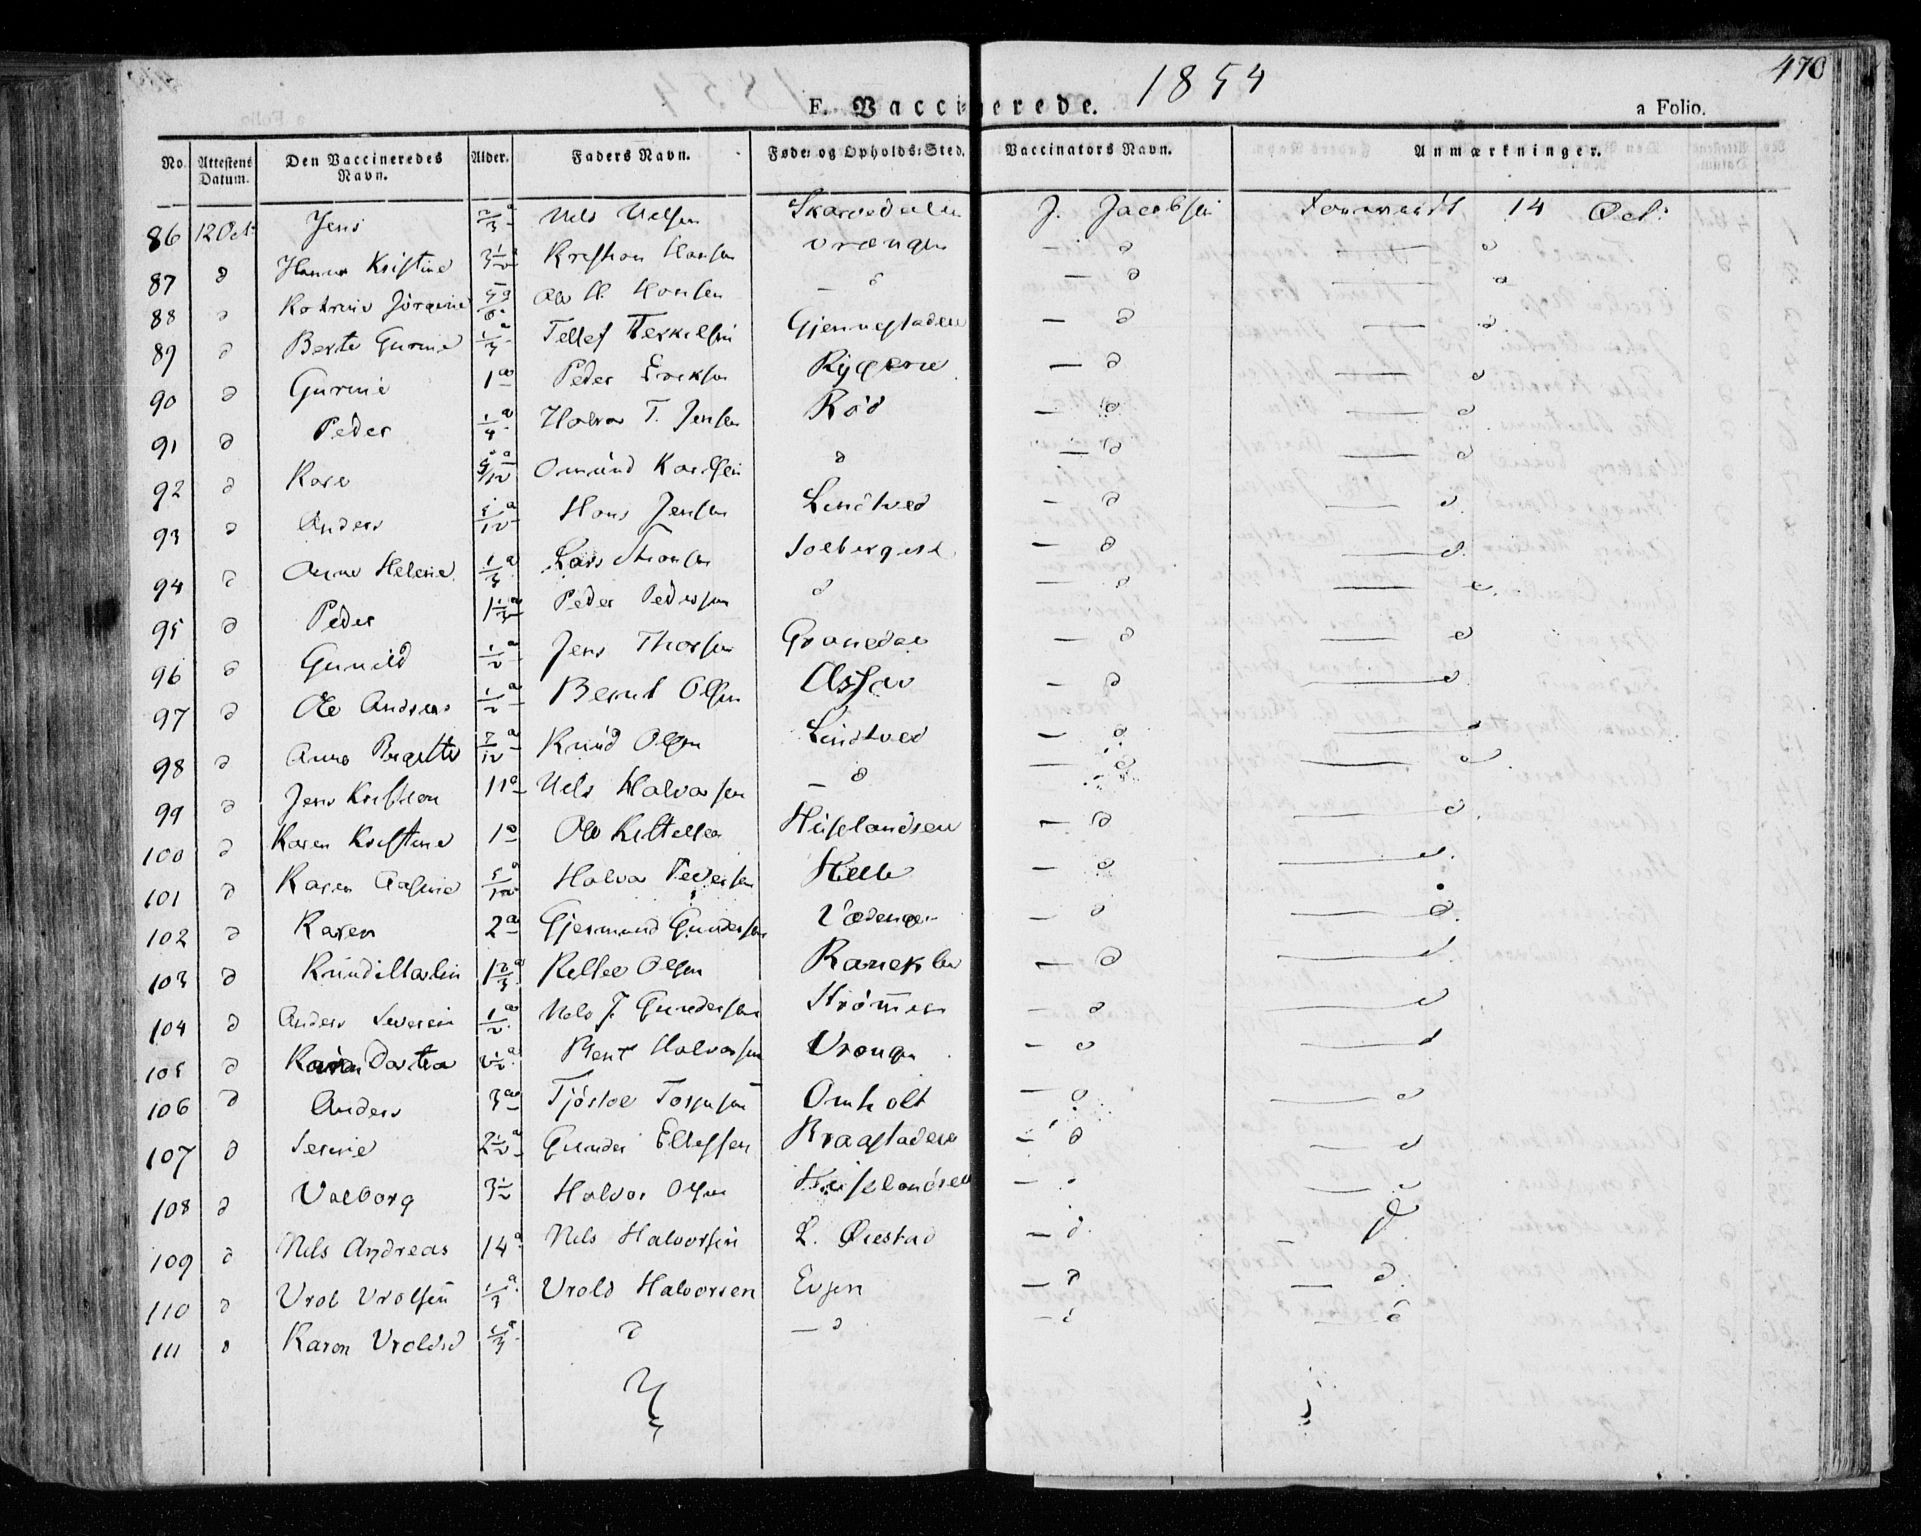 1854
470
F. Vaccinerede.
a Folio.
No. Attestens Datum. Den Vaccineredes Navn. Alder. Faders Navn. Føde- og Opholds-Sted. Vaccinators Navn. Anmærkninger.
86 12 Oct Jens 2/3 a Nils Nelsen J. Jacobsen 14 Oct:
87 d Hanna Kristine 3 1/2 Kristian Hansen Vrængen — d — d
88 d Jørgine Ole H. Hansen — d — d — d
89 d Berte Gurine 1/3 a Tellef Terkelsen Gjennestaden — d — d
90 d Gurine 1 a Peder Erikson Rygene — d — d
91 d Peder 1/4 a Halvor T. Jensen Röd — d — d
92 d Kare 5/12 a Omund Karlsen d — d — d
93 d Anders 5/12 a Hans Jensen Lindtved — d — d
94 d Anne Helene 1/3 a Lars — d — d
95 d Peder 1 1/3 a Peder Pedersen d — d — d
96 d Gunild 1/2 a Jens Thorsen — d — d
97 d Ole Andreas 1/2 a Berent Olsen — d — d
98 d Anne Birgitte 7/12 a Knud Olsen Lindtved — d — d
99 d Jens Kristian 11 a Nils Halvorsen — d — d — d
100 d Karen Kristine 1 a Ole Kittelsen Huselandsen — d — d
101 d Karen Aasine 5/12 a Halvor Pedersen — d — d
102 d Karen 2 a Gjermund Gundersen — d — d
103 d Knudi Marlin 1 2/3 a Kittel Olsen — d — d
104 d Anders Severin 1/2 a Nels J. Gundersen Strömmen — d — d
105 d Karen Dortea Bent Halvorsen Vrongen — d — d
106 d Anders 3 a Tjöstol Omholt — d — d
107 d Serine 2 1/2 a Gunder Ellefsen Braastaden — d — d
108 d Valborg 3 1/2 Halvor Olsen Huselandsen — d — d
109 d Nils Andreas 14 a Nils Halvorsen L. Øiestad — d — d
110 d Vrol Vrolsen 1/3 a Vrold Halvorsen Evjen — d — d
111 d Karen Vroldsd 1/3 a d — d — d — d